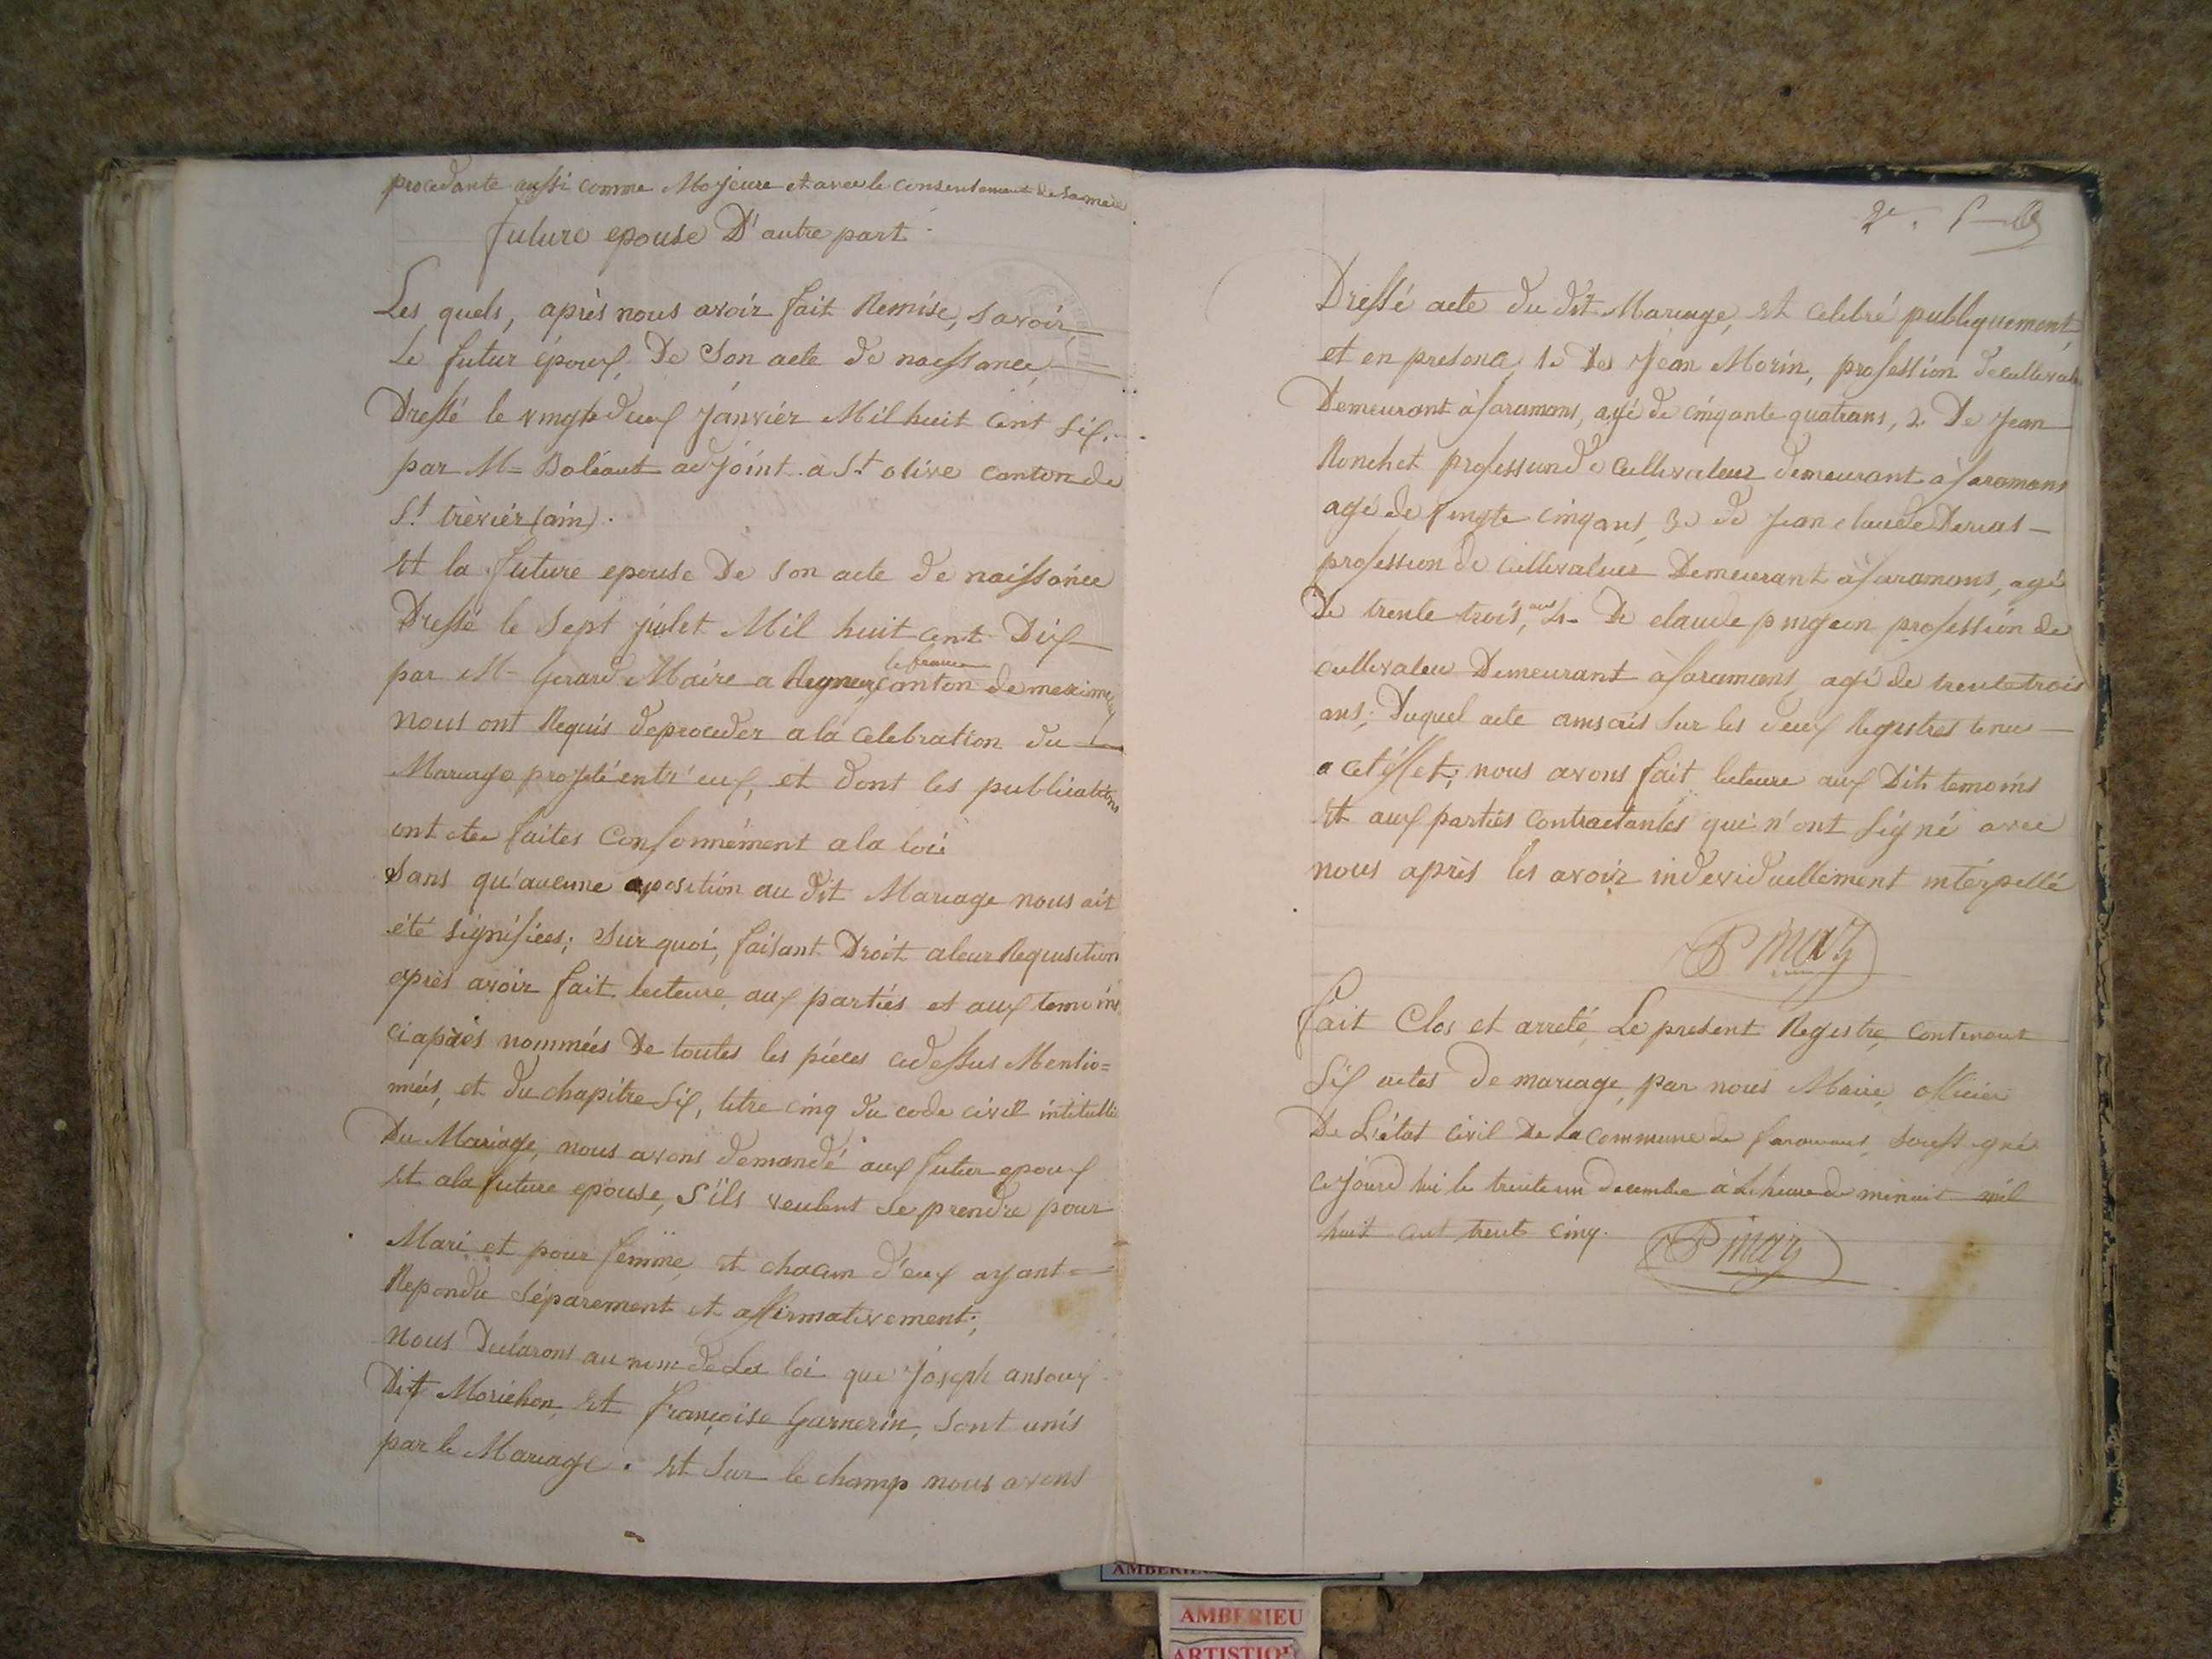 procedante aussi comme Majeure et avec le consentement de sa mere
future epouse D'autre part
Les quels, après nous avoir fait Remise, savoir
Le futur époux, De Son acte de naissance
Dressé le vingt deux Janvier Mil huit cent six
par M Boléaut adjoint a St olive canton de
St trévier (ain).
Et la future epouse De son acte de naissance
Dressé le Sept julet Mil huit cent Dix
par M Gerard Maire a Rigneux le franc canton de meximieux
nous ont Requis de proceder a la celebration du
Mariage projeté entr'eux, et dont les publications
ont ete faites Conformément a la loi
Sans qu'aucune oposition au dit Mariage nous ait
été signifiées; Sur quoi, faisant Droit a leur Requisition
après avoir fait lecteure aux parties et aux temoins
ci après nommées De toutes les pièces cidessus Mentio=
nnées, et du chapitre Six, titre cinq du code civil intitullé
Du Mariage, nous avons demandé aux futur epoux
Et a la future epouse, S'ils veulent se prendre pour
Mari et pour femme, et chacun d'eux ayant
Repondu Séparement et affirmativement;
nous Declarons au nom de La loi que joseph ansoux
Dit Morichon, Et françoise Garnerin, Sont unis
par le Mariage. Et Sur le champ nous avons
2e
Dressé acte du dit Mariage, Et celebré publiquement
et en presence, 1e De Jean Morin, profession de cultivateur
Demeurant à faramans, agé de cinqante quatrans, 2. De Jean
Ronchet profession de Cultivateur demeurant à faramans
agé de vingte cinq ans, 3e de Jean claude
profession de cultivateur Demeurant à faramans, agé
De trente trois ans, 4. De claude pingeon profession de
cultivateur Demeurant à faramans, agé de trente trois
ans; Duquel acte sur les deux Registres tenus
a cet effet; nous avons fait lecteure aux Dits temoins
Et aux parties Contractantes qui n'ont Signé avec
nous après les avoir individuellement interpellé
P Maz
fait Clos et arreté, Le present Registre, contenant
Six actes de mariage, par nous Maire, officier
De L'état civil De La commune de faramans, soussigné
cejourd hui le trente un decembre à L'heure de minuit mil
huit cent trente cinq.
AMBERIEU
ARTISTIQUE